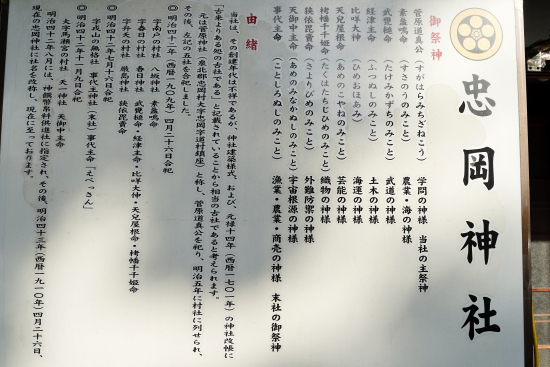 忠岡神社
御祭神
菅原道真公（すがはらみちざねこう）　学問の神様　当社の主祭神
素盞嗚命（すさのうのみこと）　農業・海の神様
武甕槌命（たけみかずちのみこと）　武道の神様
経津主命（ふつぬしのみこと）　土木の神様
比咩大神（ひめおおほみ）　海運の神様
天兒屋根命（あめのこやねのみこと）　芸能の神様
栲幡千千姫命（たくはたちじひめのみこと）　織物の神様
狭依毘賣命（さよりびめのみこと）　外難防禦の神様
天御中主命（あめのみなかぬしのみこと）　宇宙根源の神様
事代主命（ことしろぬしのみこと）　漁業・農業・商売の神様　末社の御祭神
由緒
当社は、その創建年代は不祥であるが、神社建築様式、および、元禄十四年（西暦一七〇一年）の神社改帳に
「古来よりある処の古社である」と記載されていることから相当の古社であると考えられます。
元は菅原神社（泉北郡忠岡村大字忠岡字道村鎮座）と称し、菅原道真公を祀り、明治五年に村社に列せられ、
その後、左記の五社を合祀しました。
◎明治四十二年（西暦一九〇九年）四月二十六日合祀
字南戸の村社　八坂神社　素盞嗚命
字春日の村社　春日神社　武甕槌命・経津主命・比咩大神・天兒屋根命・栲幡千千姫命
字弁天の村社　厳島神社　狭依毘賣命
◎明治四十二年七月十六日合祀
字戎山の無格社　事代主神社（末社）事代主命「えべっさん」
◎明治四十一年十一月九日合祀
大字馬瀬宮の村社　天一神社　天御中主命
明治四十二年八月には、神饌幣帛料供進社に指定され、その後、明治四十三年（西暦一九一〇年）四月二十六日、
現在の忠岡神社に社名を改称し、現在に至っております。